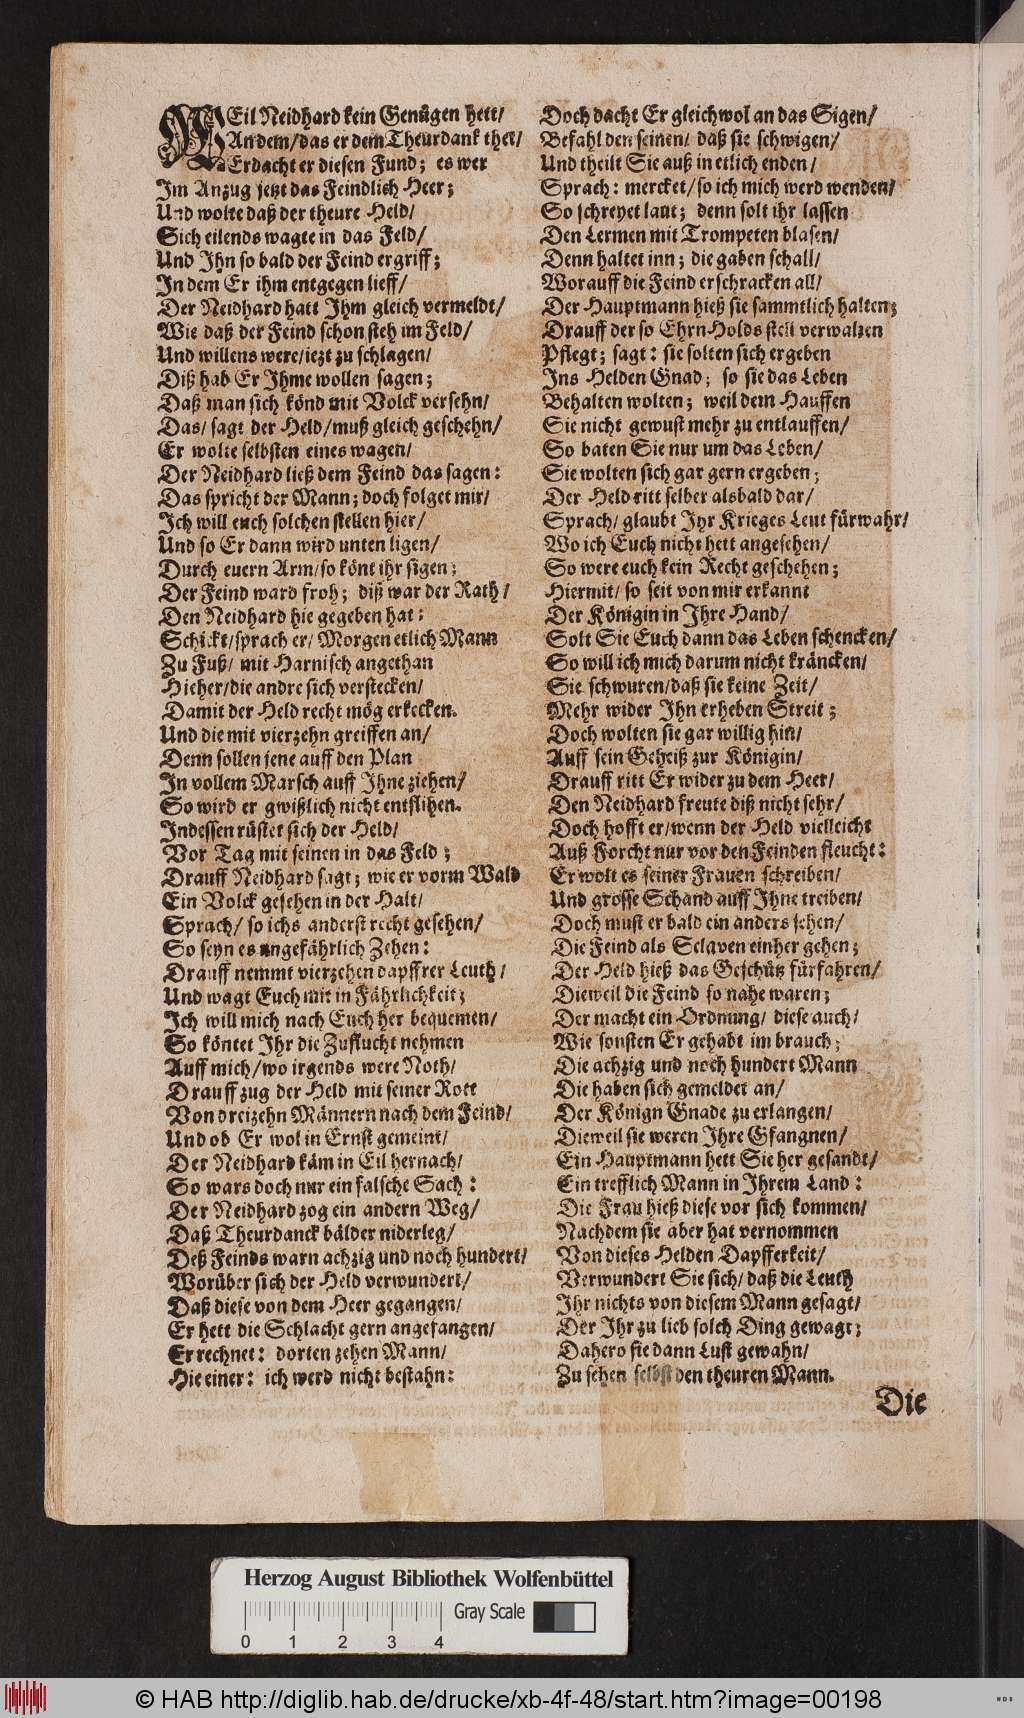 WEil Neidhard kein Genügen hett/
An dem/das er dem Theurdank thet/
Erdacht er diesen Fund; es wer
Im Anzug jetzt das Feindlich Heer;
Und wolte daß der theure Held/
Sich eilends wagte in das Feld/
Und Ihn so bald der Feind ergriff;
In dem Er ihm entgegen lieff/
Der Neidhard hatt Ihm gleich vermeldt/
Wie daß der Feind schon steh im Feld/
Und willens were/iezt zu schlagen/
Diß hab Er Ihme wollen sagen;
Daß man sich könd mit Volck versehn/
Das/ sagt der Held/muß gleich geschehn/
Er wolte selbsten eines wagen/
Der Neidhard ließ dem Feind das sagen:
Das spricht der Mann; doch folget mir/
Ich will euch solchen stellen hier/
Und so Er dann wird unten ligen/
Durch euern Arm/so könt ihr sigen;
Der Feind ward froh; diß war der Rath/
Den Neidhard hie gegeben hat:
Schickt/sprach er/ Morgen etlich Mann
Zu Fuß/ mit Harnisch angethan
Hieher/die andre sich verstecken/
Damit der Held recht mög erkecken.
Und die mit vierzehn greiffen an/
Denn sollen jene auff den Plan
In vollem Marsch auff Ihne ziehen/
So wird er gwißlich nicht entflihen.
Indessen rüstet sich der Held/
Vor Tag mit seinen in das Feld;
Drauff Neidhard sagt; wie er vorm Wald
Ein Volck gesehen in der Halt/
Sprach/ so ichs anderst recht gesehen/
So seyn es ungefährlich Zehen:
Drauff nemmt vierzehen dapffrer Leuth/
Und wagt Euch mit in Fährlichkeit;
Ich will mich nach Euch her bequemen/
So köntet Ihr die Zuflucht nehmen
Auff mich/wo irgends were Noth/
Drauff zug der Held mit seiner Rott
Von dreizehn Männern nach dem Feind/
Und ob Er wol in Ernst gemeint/
Der Neidhard käm in Eil hernach/
So wars doch nur ein falsche Sach:
Der Neidhard zog ein andern Weg/
Daß Theurdanck bälder niderleg/
Deß Feinds warn achzig und noch hundert/
Worüber sich der Held verwundert/
Daß diese von dem Heer gegangen/
Er hett die Schlacht gern angefangen/
Er rechnet: dorten zehen Mann/
Hie einer: ich werd nicht bestahn:
Doch dacht Er gleichwol an das Sigen/
Befahl den seinen/ daß sie schwigen/
Und theilt Sie auß in etlich enden/
Sprach: mercket/so ich mich werd wenden/
So schreyet laut; denn solt ihr lassen
Den Lermen mit Trompeten blasen/
Denn haltet inn; die gaben schall/
Worauff die Feind erschracken all/
Der Hauptmann hieß sie sammtlich halten;
Drauff der so Ehrn-Holds stell verwalten
Pflegt; sagt: sie solten sich ergeben
Ins Helden Gnad; so sie das Leben
Behalten wolten; weil dem Hauffen
Sie nicht gewust mehr zu entlauffen/
So baten Sie nur um das Leben/
Sie wolten sich gar gern ergeben;
Der Held ritt selber alsbald dar/
Sprach/ glaubt Ihr Krieges Leut fürwahr/
Wo ich Euch nicht hett angesehen/
So were euch kein Recht geschehen;
Hiermit/ so seit von mir erkannt
Der Königin in Ihre Hand/
Solt Sie Euch dann das Leben schencken/
So will ich mich darum nicht kräncken/
Sie schwuren/daß sie keine Zeit/
Mehr wider Ihn erheben Streit;
Doch wolten sie gar willig hin/
Auff sein Geheiß zur Königin/
Drauff ritt Er wider zu dem Heer/
Den Neidhard freute diß nicht sehr/
Doch hofft er/wenn der Held vielleicht
Auß Forcht nur vor den Feinden fleucht:
Er wolt es seiner Frauen schreiben/
Und grosse Schand auff Ihne treiben/
Doch must er bald ein anders sehen/
Die Feind als Sclaven einher gehen;
Der Held hieß das Geschütz fürfahren/
Dieweil die Feind so nahe waren;
Der macht ein Ordnung/ diese auch/
Wie sonsten Er gehabt im brauch;
Die achzig und noch hundert Mann
Die haben sich gemeldet an/
Der Könign Gnade zu erlangen/
Dieweil sie weren Ihre Gfangnen/
Ein Hauptmann hett Sie her gesandt/
Ein trefflich Mann in Ihrem Land:
Die Frau hieß diese vor sich kommen/
Nachdem sie aber hat vernommen
Von dieses Helden Dapfferkeit/
Verwundert Sie sich/ daß die Leuth
Ihr nichts von diesem Mann gesagt/
Der Ihr zu lieb solch Ding gewagt;
Dahero sie dann Lust gewahn/
Zu sehen selbst den theuren Mann.
Die
Herzog August Bibliothek Wolfenbüttel
Gray Scale
0 1 2 3 4
© HAB http://diglib.hab.de/drucke/xb-4f-48/start.htm?image=00198